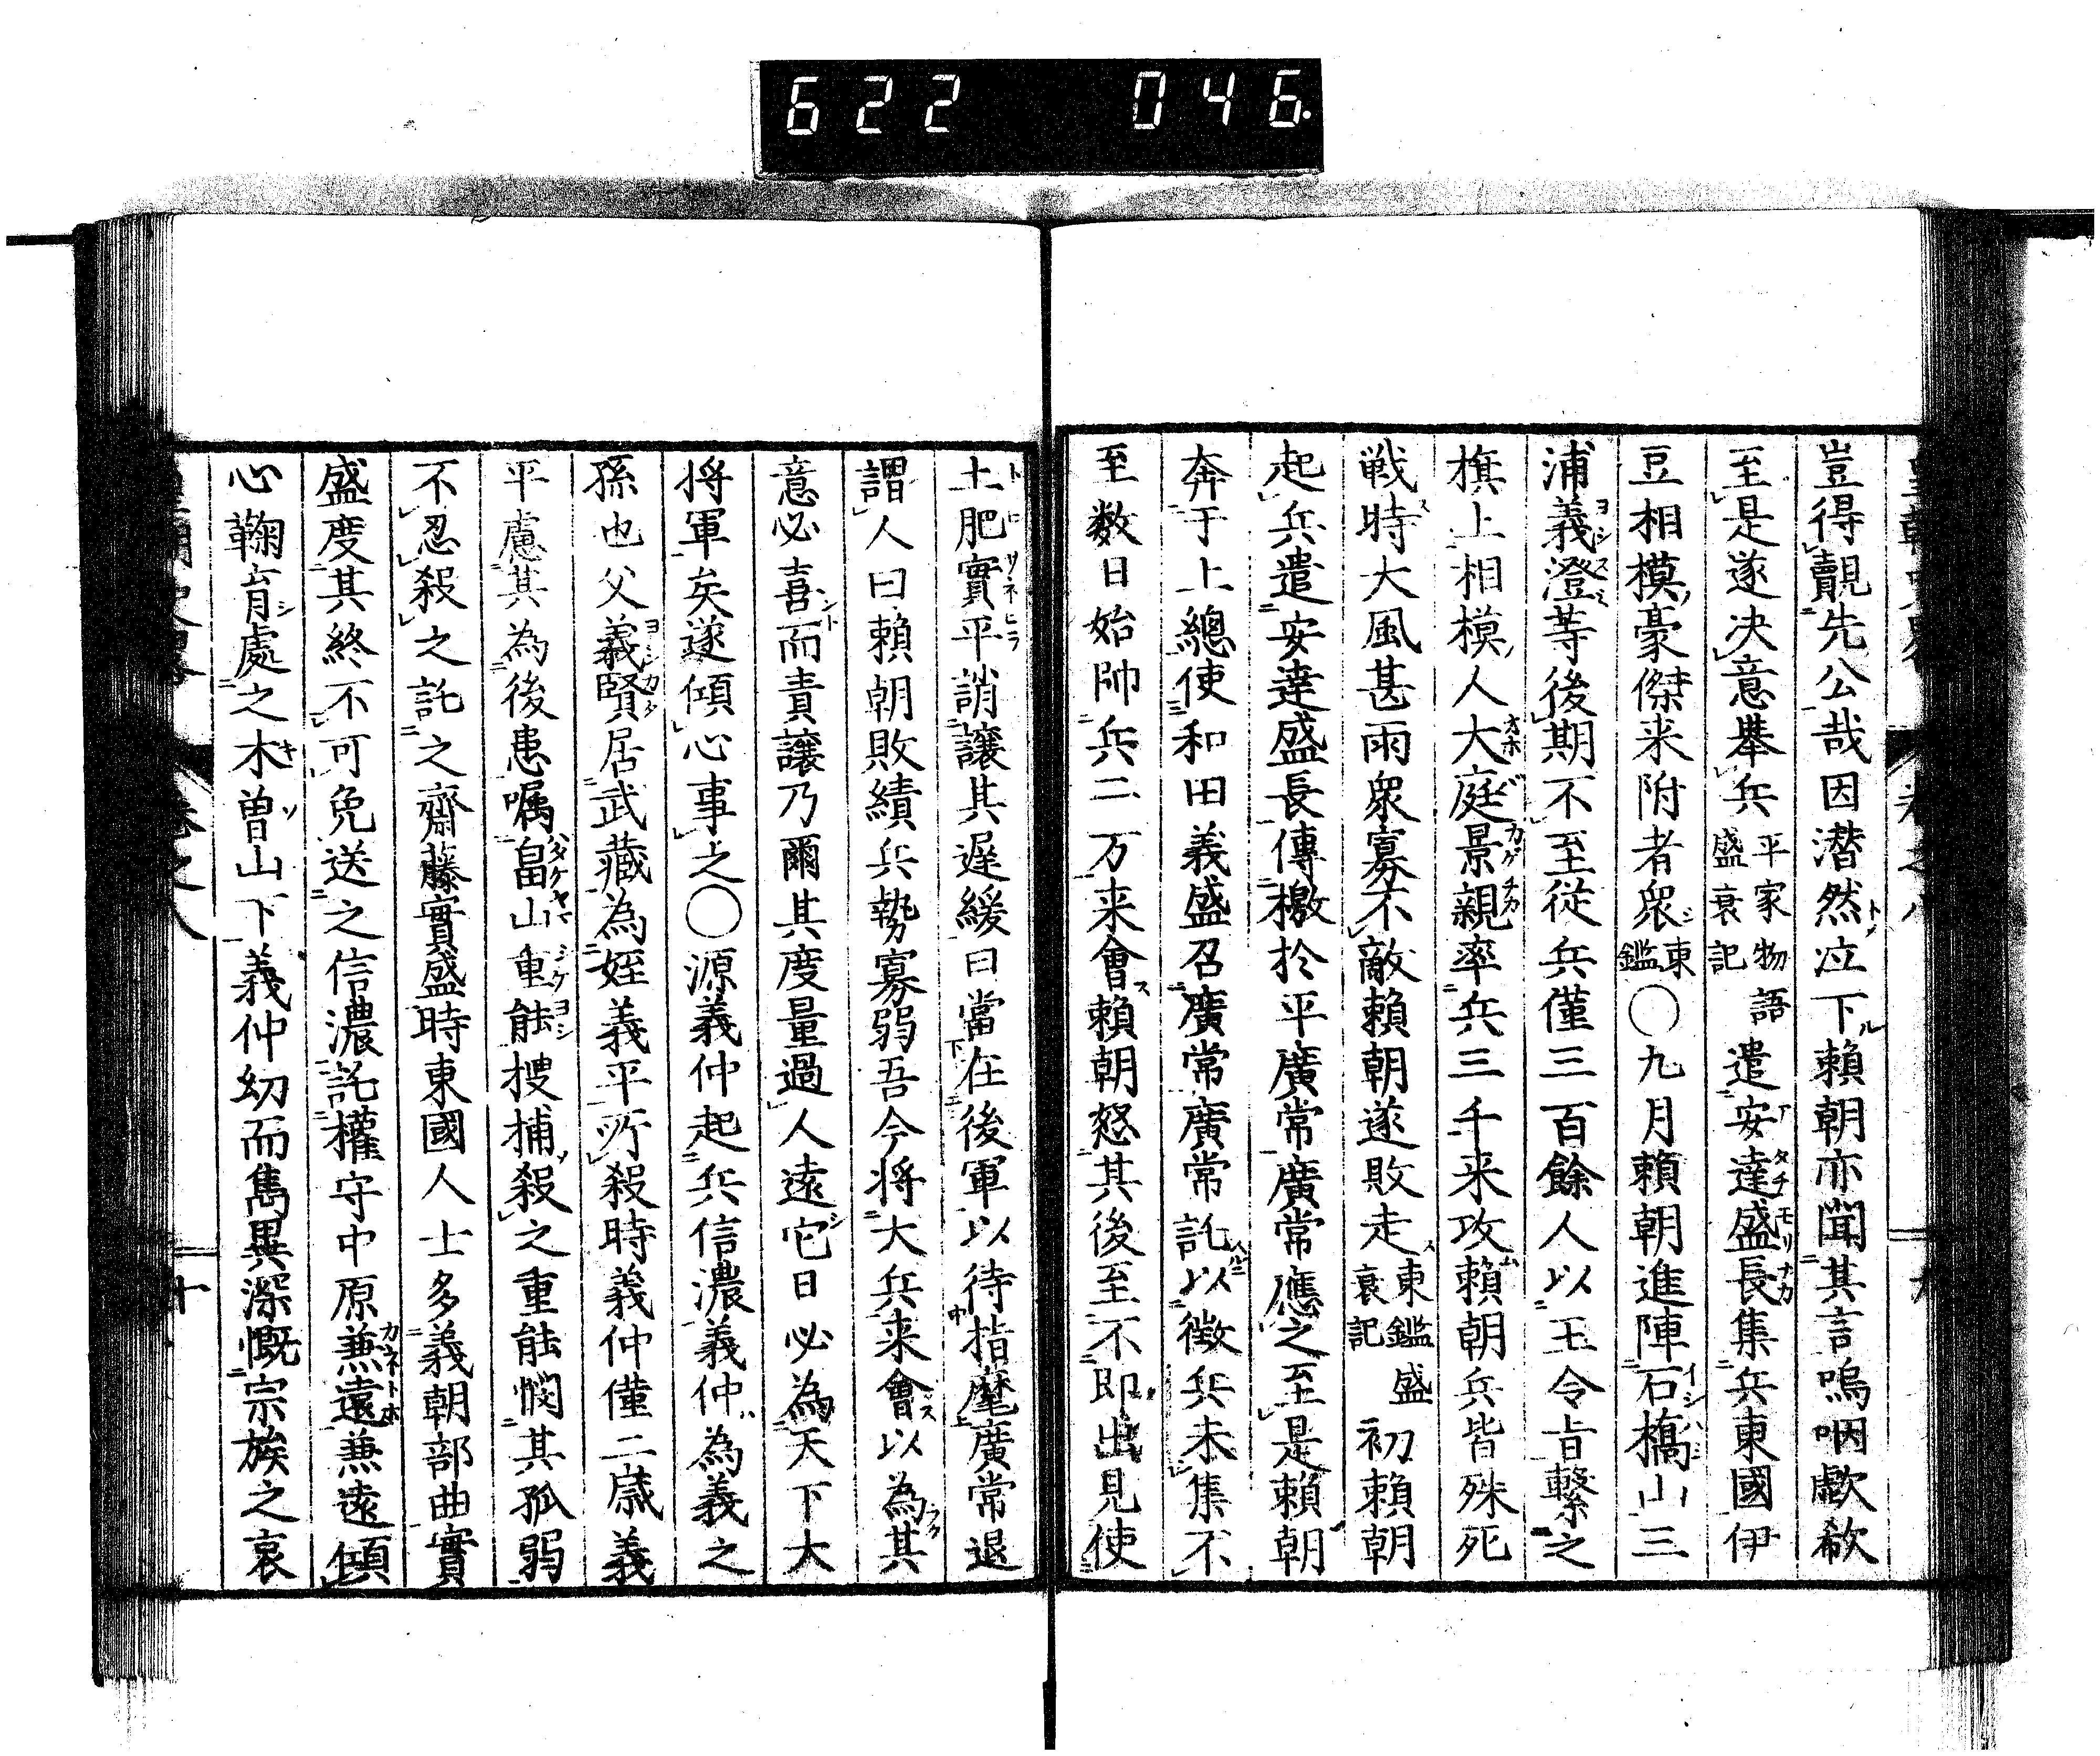 622 046.
豈得覿先公哉因潜然泣下賴朝亦聞其言嗚咽歔欷
至是遂决意擧兵平家物語盛衰記遣安達盛長集兵東國伊
豆相模豪傑来附者衆東鑑○九月賴朝進陣石橋山三
浦義澄等後期不至從兵僅三百餘人以王令旨繫之
旗上相模人大庭景親率兵三千来攻賴朝兵皆殊死
戦時大風甚雨衆寡不敵賴朝遂敗走東鑑盛衰記初賴朝
起兵遣安達盛長傳檄於平廣常廣常應之至是賴朝
奔于上總使和田義盛召廣常廣常託以徴兵未集不
至数日始帥兵二万来會賴朝怒其後至不即出見使
土肥實平誚譲其遅緩曰當在後軍以待指麾廣常退
謂人曰賴朝敗績兵勢寡弱吾今将大兵来會以為其
意必喜而責譲乃爾其度量過人遠它日必為天下大
将軍矣遂傾心事之○源義仲起兵信濃義仲為義之
孫也父義賢居武藏為姪義平所殺時義仲僅二歳義
平慮其為後患嘱畠山重能捜捕殺之重能憫其孤弱
不忍殺之託之齋藤實盛時東國人士多義朝部曲實
盛度其終不可免送之信濃託權守中原兼遠兼遠傾
心鞠育處之木曽山下義仲幼而雋異深慨宗族之衰
十